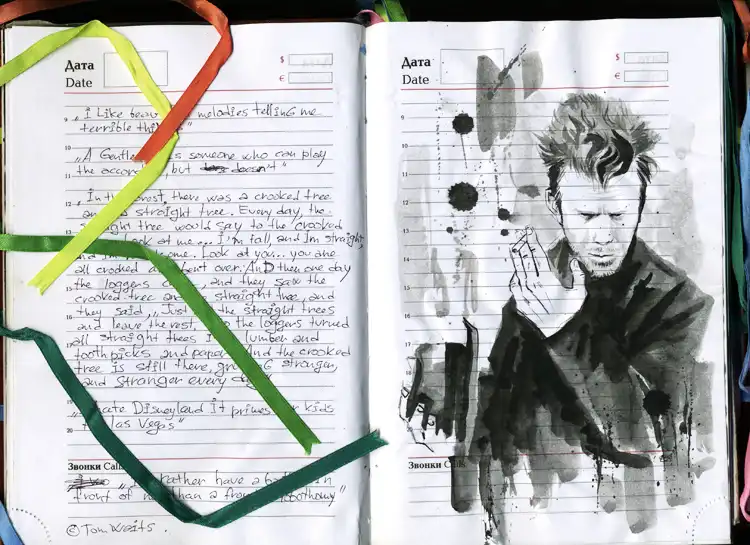 Дата
Date
$
€
9 "i Like melodies telling me
terrible
10 "A is someone who can play
the but doesn't"
11 "In the there was a crooked tree
12 a straight tree. Every day, the
straight tree would say to the crooked
13 at me... I'm tall, and Im straight,
and Look at you... you are
all crooked and bent over. And then one day
15 the loggers and they saw the
crooked tree straight tree, and
they said, "Just the straight trees
17 and leave the rest. the loggers turned
all straight trees lumber and
18 toothpicks and paper. And the crooked
tree is still there, stronger,
19 and stranger every
Disneyland it primes kids
20 Las Vegas"
Звонки Calls
rather have a
front of than a
© Tom Waits.
Дата
Date
$
€
9
10
11
12
13
14
17
18
Звонки Calls